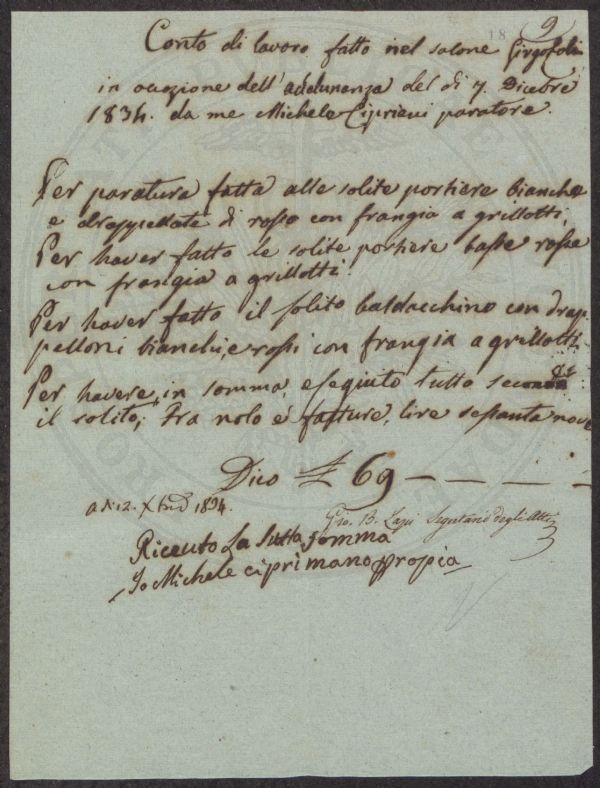 18 9
Conto di lavoro fatto nel salone
in ocazione dell'addunanza del dì 7. Dicebre
1834. da me Michele Cipriani paratore.
Per paratura fatta alle solite portiere bianche
e drappellate di rosso con frangia a grillotti,
Per haver fatto le solite portiere basse rosse
con frangia a grillotti.
Per haver fatto il solito baldacchino con drap
pelloni bianchi e rossi con frangia a grillotti.
Per havere, in somma, eseguito tutto secondo
il solito; fra nolo e fatture, lire sesanta nove
Dico £ 69 — — — —
a dì 12. Xbre 1834.
Gio. B. Segretario degli Atti
Riceuto La Sudta. somma
Io Michele cipri mano propia